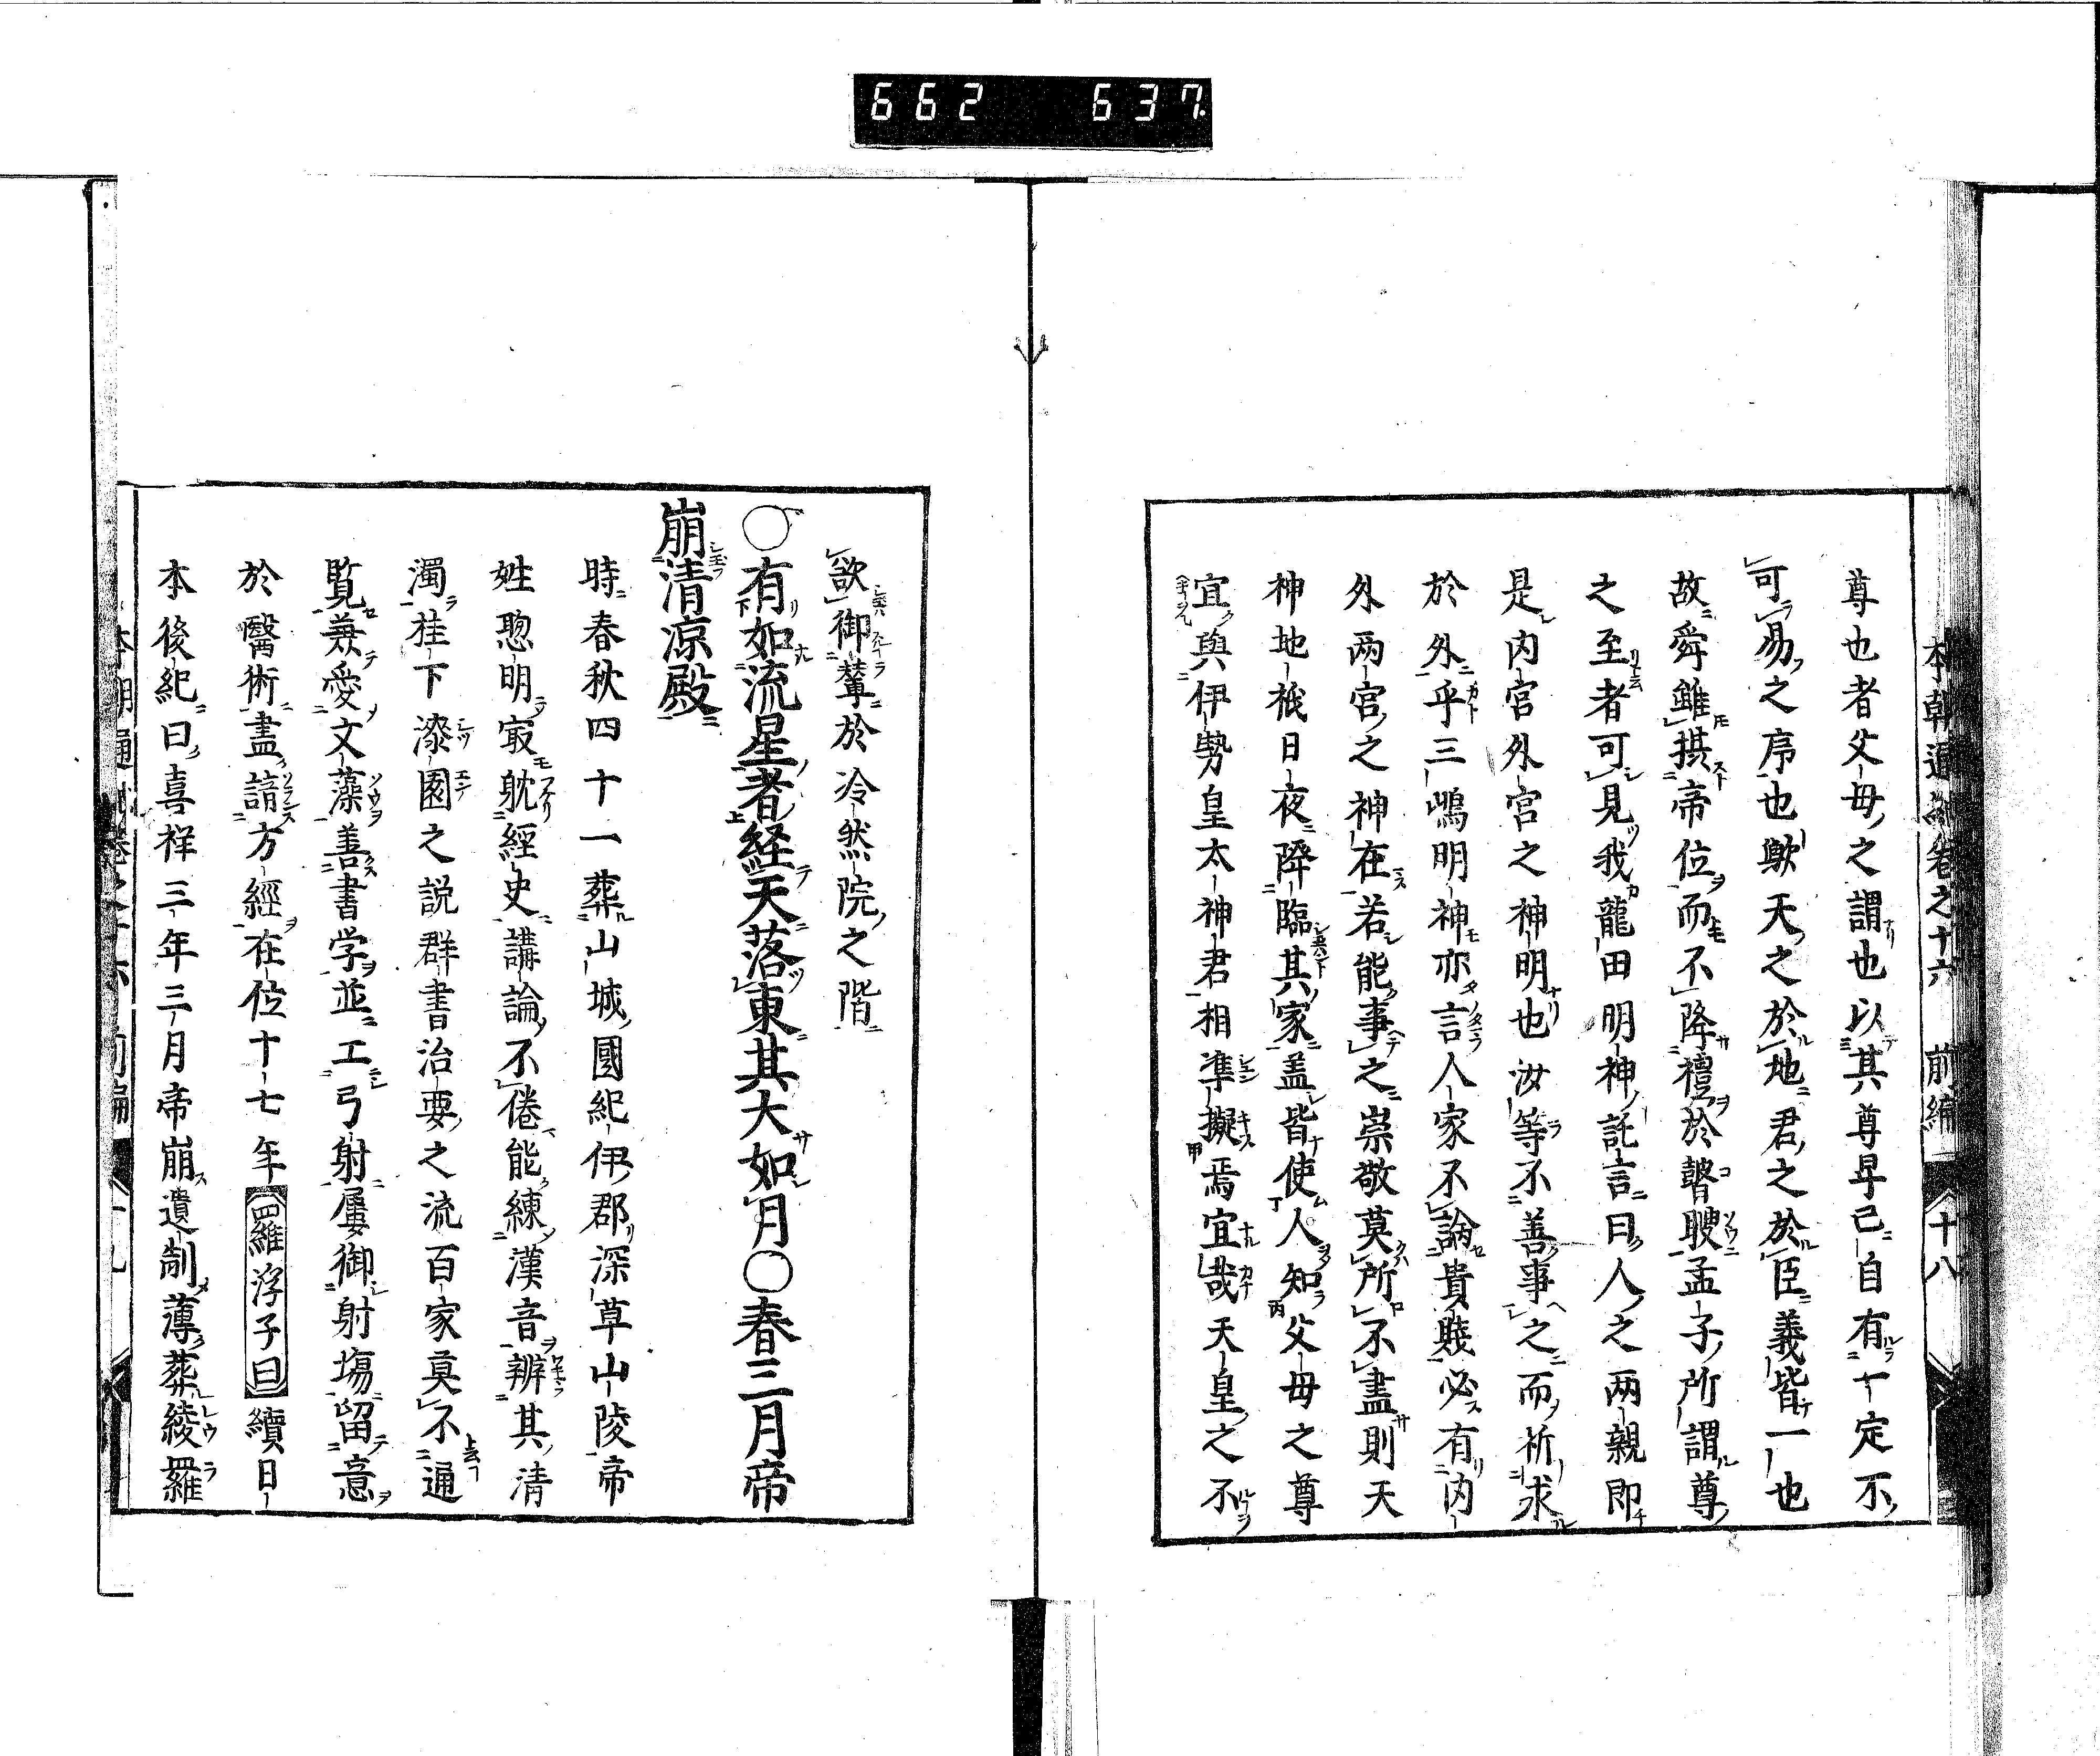 662 637
本朝通紀卷之十六 前編 十八
尊也者父母之謂也以其尊卑已自有一定不
可易之序也歟天之於地君之於臣義皆一也
故舜雖拱帝位而不降禮於瞽瞍孟子所謂尊
之至者可見我龍田明神託言曰人之两親即
是内宮外宮之神明也汝等不善事之而祈求
於外乎三嶋明神亦言人家不論貴賤必有内
外两宮之神在若能事之崇敬莫所不盡則天
神地祇日夜降臨其家盖皆使人知父母之尊
宜與伊勢皇太神君相準擬焉宜哉天皇之不
欲御輦於冷然院之階
○有如流星者経天落東其大如月○春三月帝
崩清凉殿
時春秋四十一葬山城國紀伊郡深草山陵帝
姓聰明㝡躭經史講論不倦能練漢音辨其清
濁桂下漆園之説群書治要之流百家莫不通
覧兼愛文藻善書学並工弓射屢御射塲留意
於醫術盡諳方經在位十七年羅浮子曰續日
本後紀曰喜祥三年三月帝崩遺制薄葬綾羅